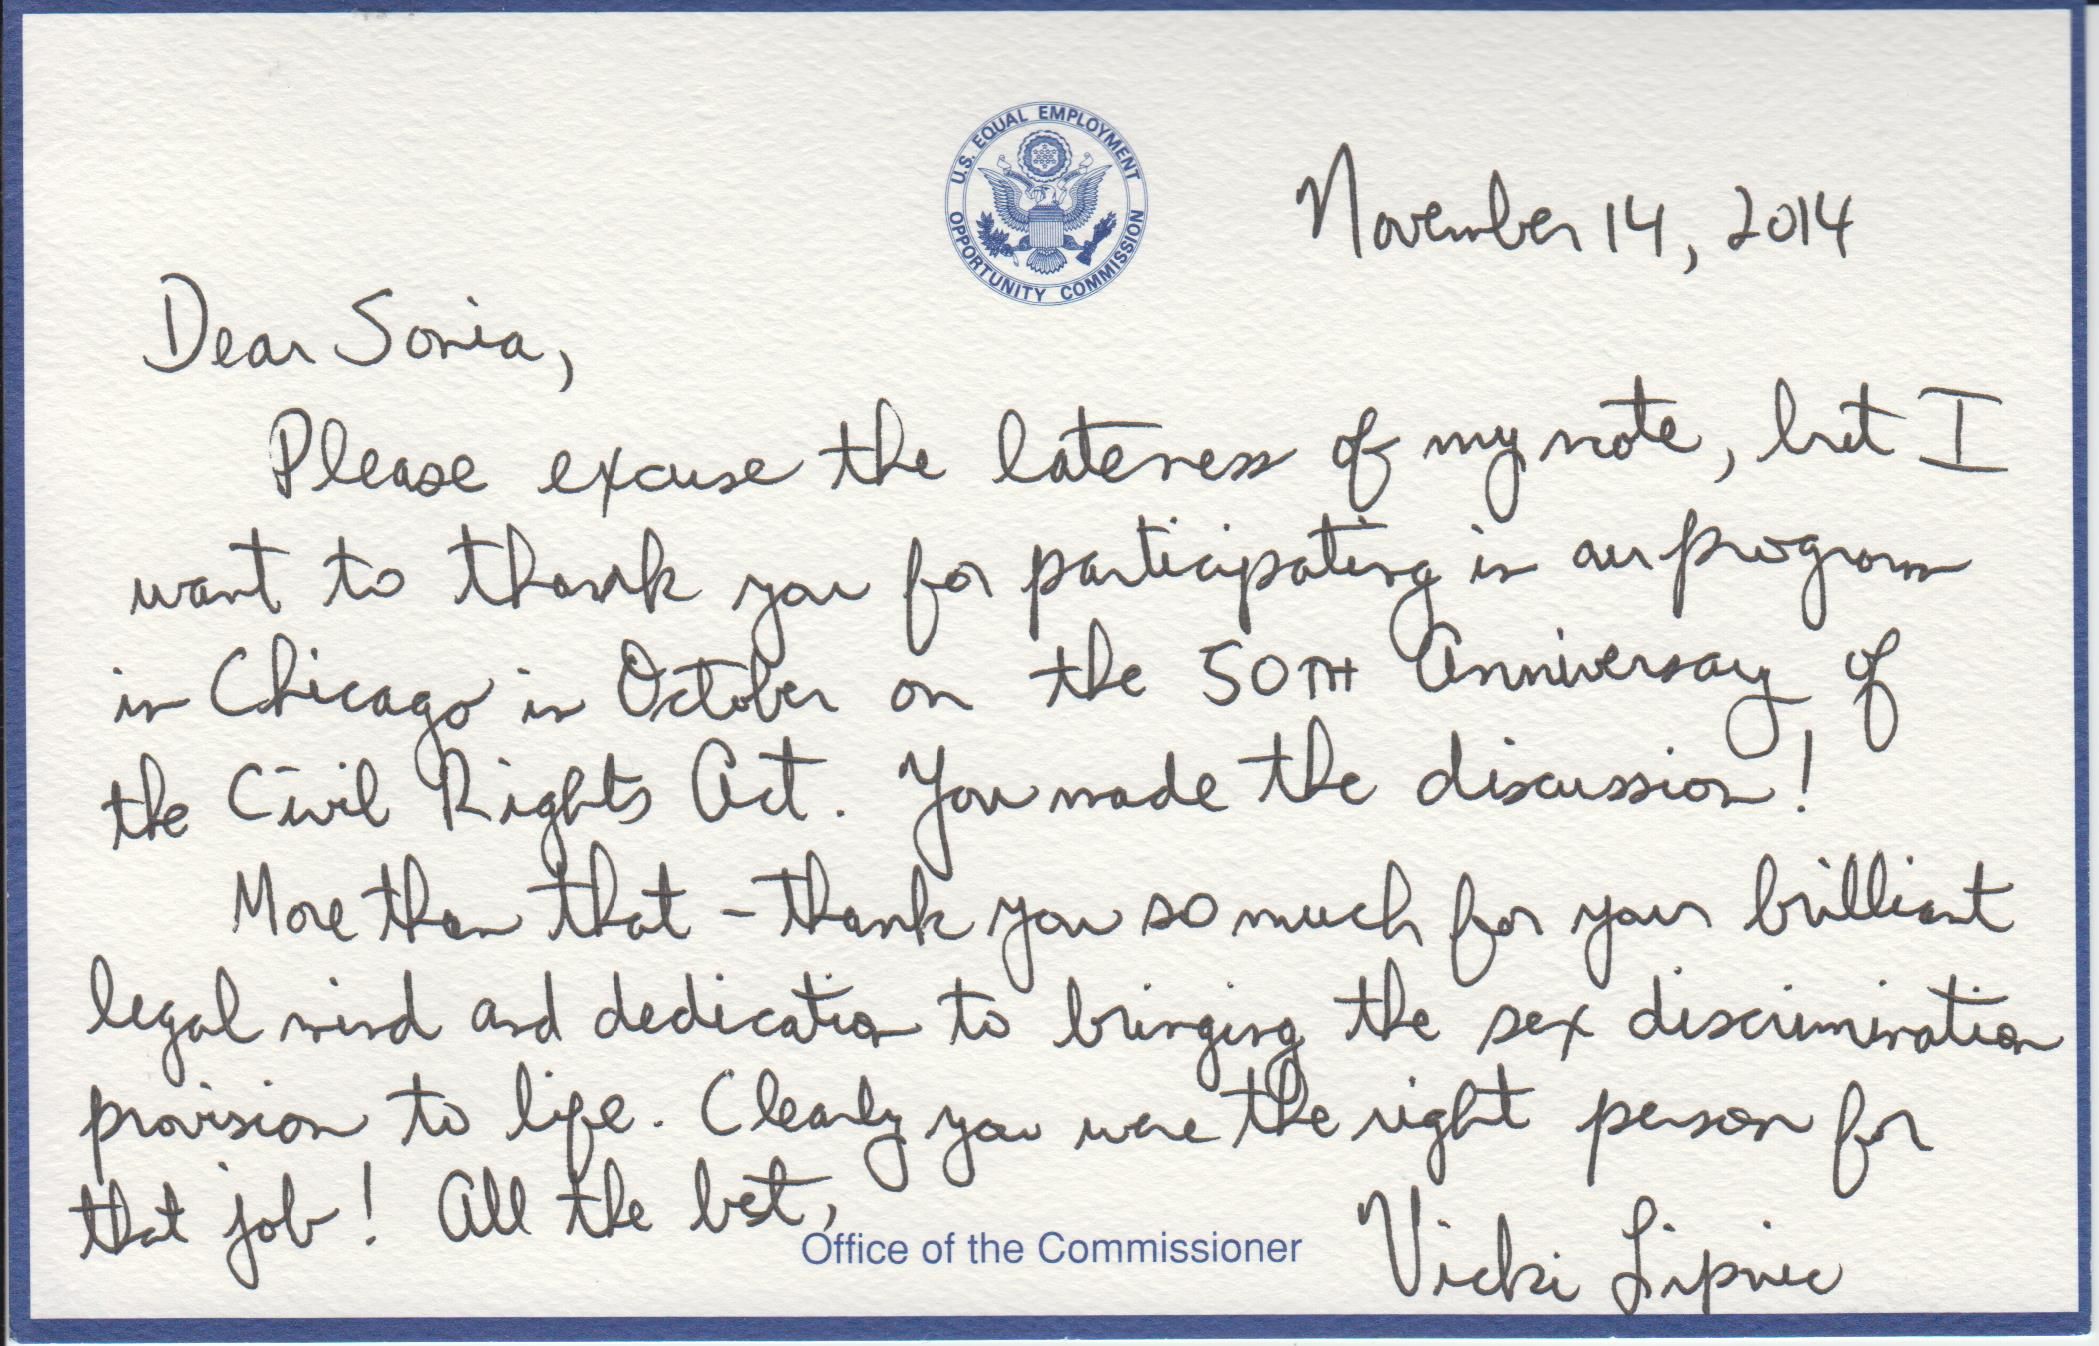 U.S. EQUAL EMPLOYMENT OPPORTUNITY COMMISSION
November 14, 2014
Dear Sonia,
Please excuse the lateness of my note, but I
want to thank you for participating in our program
in Chicago in October on the 50TH Anniversary of
the Civil Rights Act. You made the discussion!
More than that - thank you so much for your brilliant
legal mind and dedication to bringing the sex discrimination
provision to life. Clearly you were the right person for
that job! All the best,
Office of the Commissioner
Vicki Lipnic